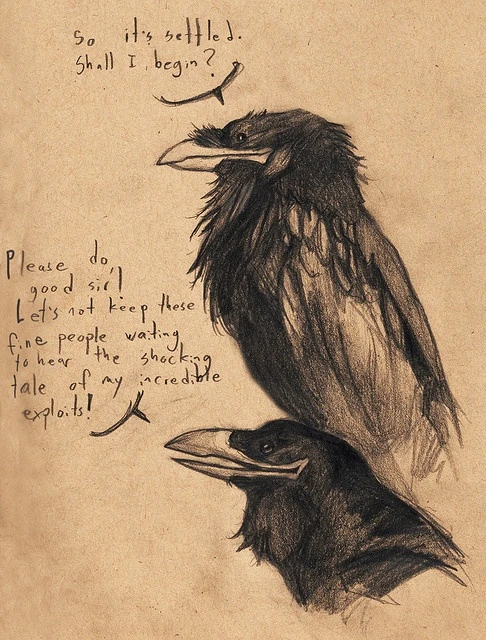 So it's settled.
Shall I begin?
Please do,
good sir!
Let's not keep these
fine people waiting
to hear the shocking
tale of my incredible
exploits!